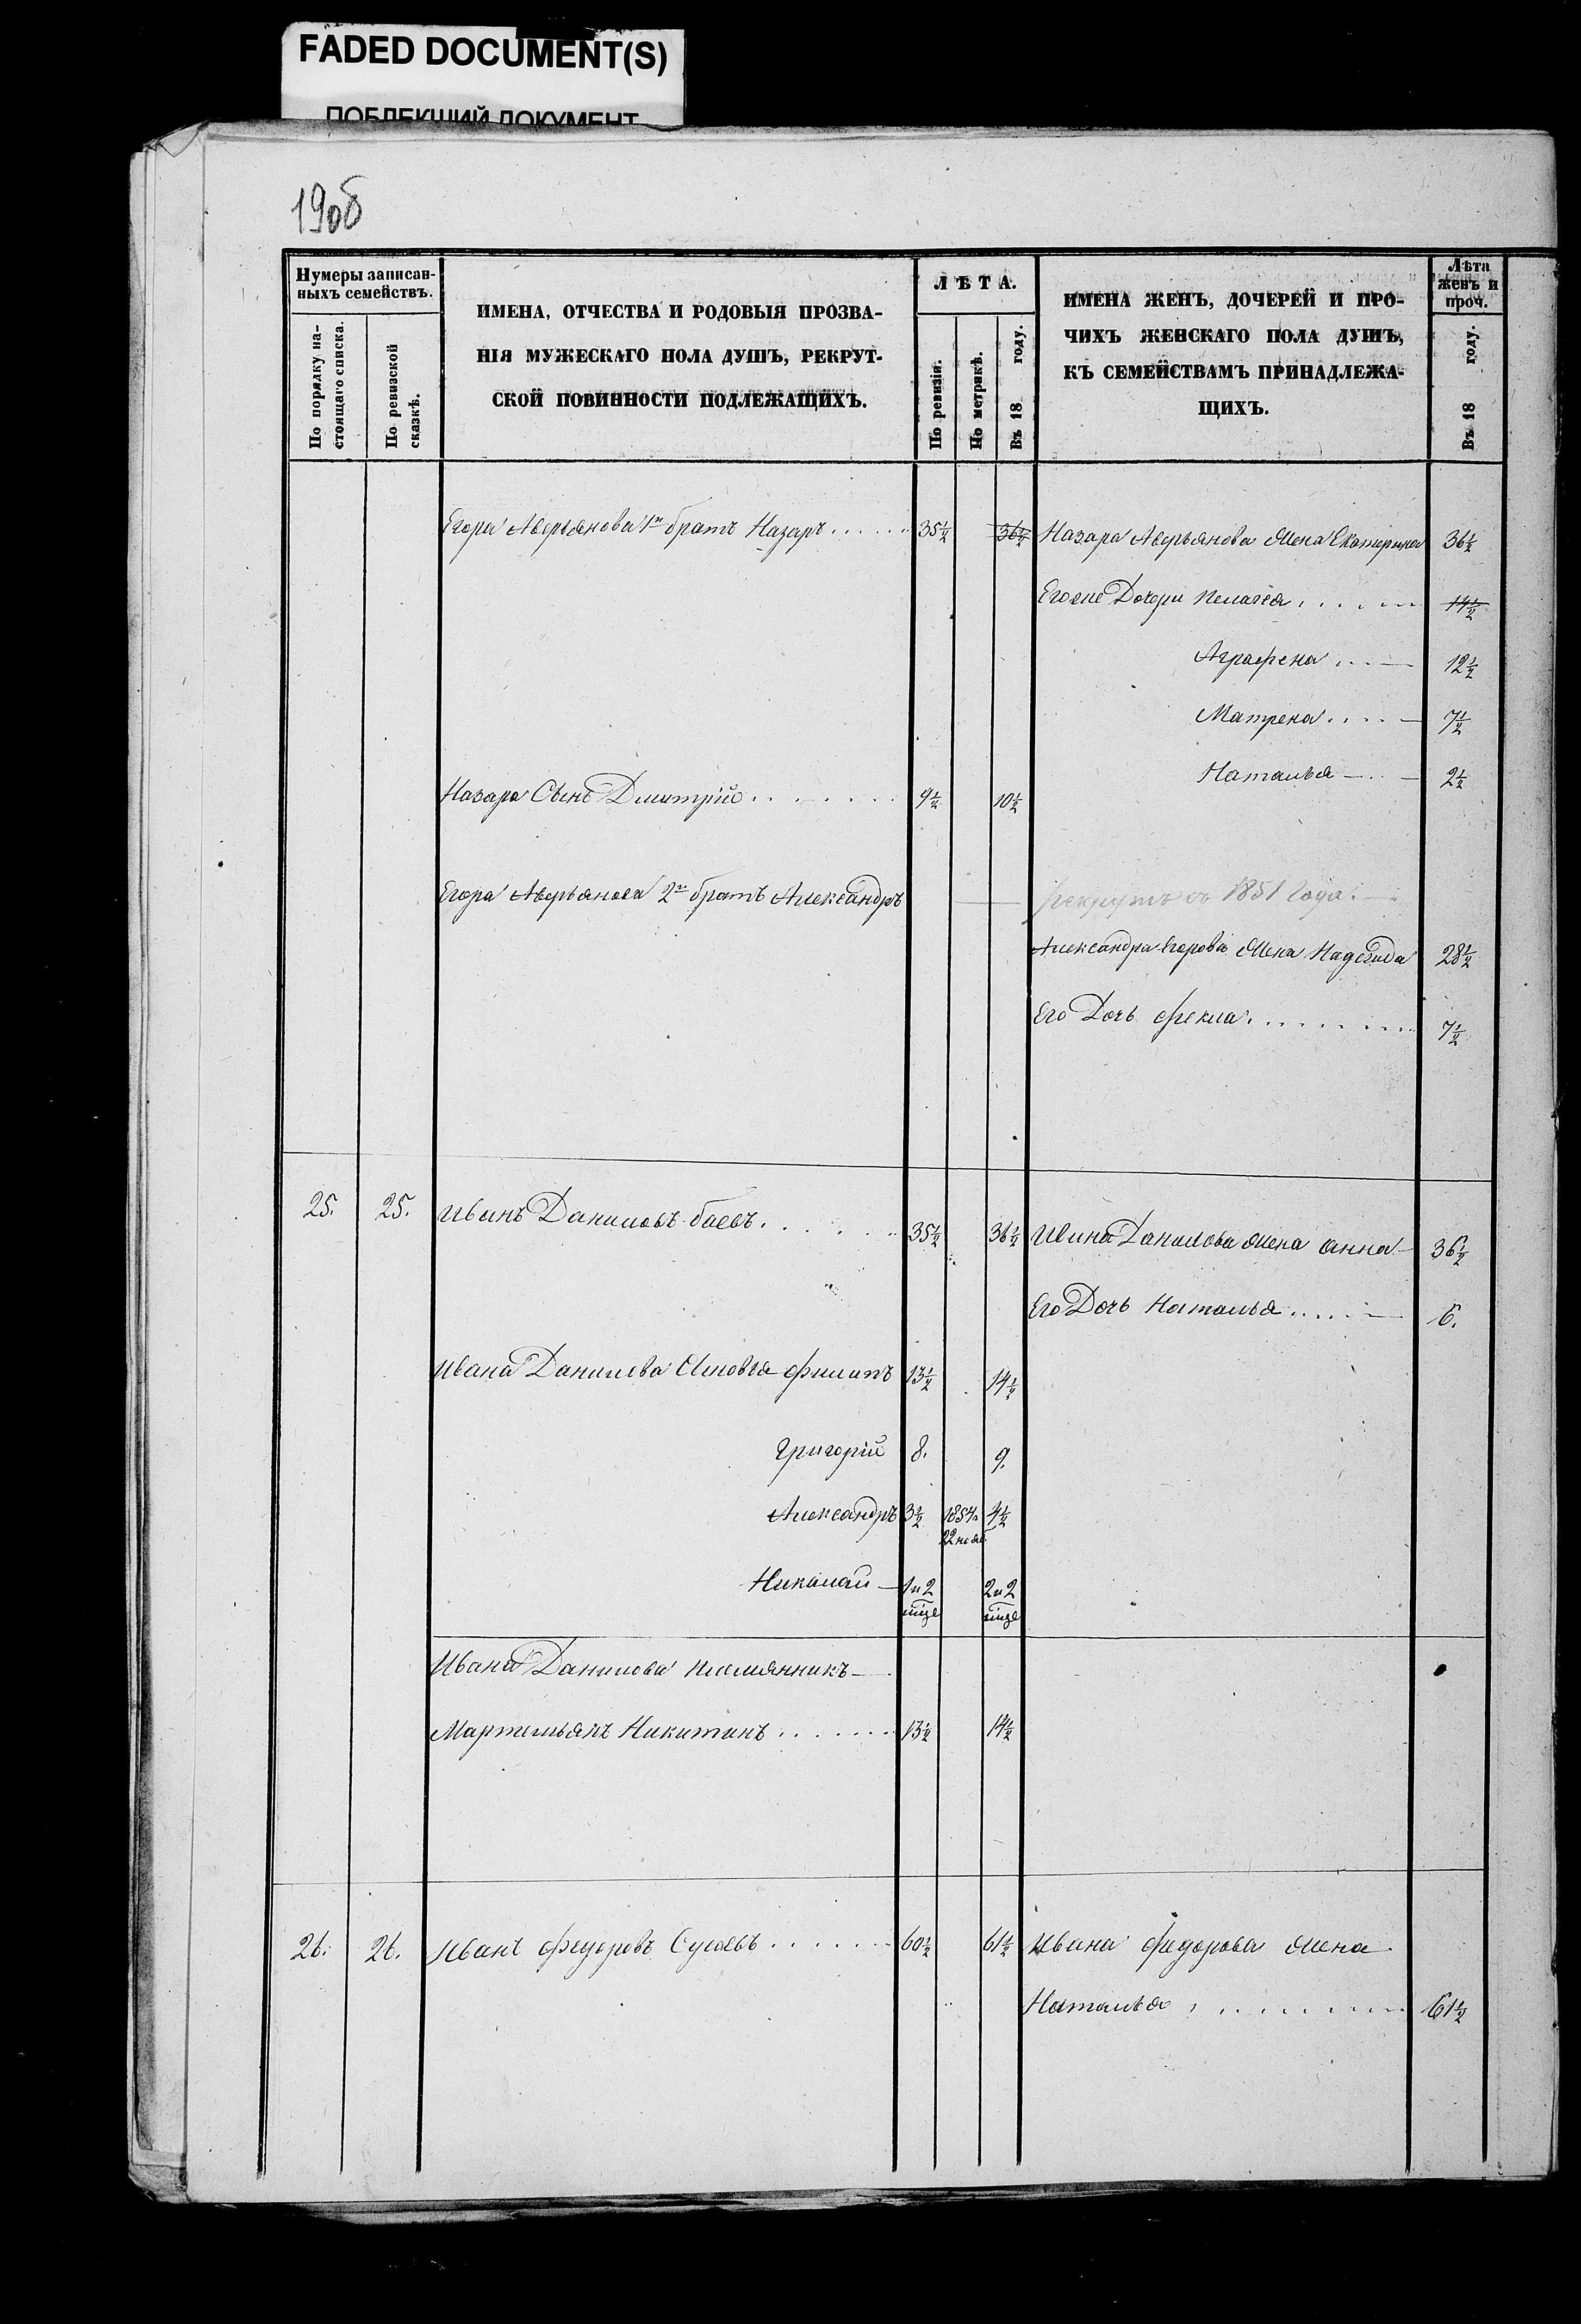 FADED DOCUMENT(S)
ПОБЛЕКШИЙ ДОКУМЕНТ
190б
Нумеры записан-
ныхъ семействъ.
По порядку на-
стоящаго списка.
По ревизской
сказкѣ.
ИМЕНА, ОТЧЕСТВА И РОДОВЫЯ ПРОЗВА-
НІЯ МУЖЕСКАГО ПОЛА ДУШЪ, РЕКРУТ-
СКОЙ ПОВИННОСТИ ПОДЛЕЖАЩИХЪ.
ЛѢТА.
По ревизіи.
По метрикѣ.
Въ 18 году.
ИМЕНА ЖЕНЪ, ДОЧЕРЕЙ И ПРО-
ЧИХЪ ЖЕНСКАГО ПОЛА ДУШЪ,
КЪ СЕМЕЙСТВАМЪ ПРИНАДЛЕЖА-
ЩИХЪ.
Лѣта
женъ и
проч.
Въ 18 году.
Егора Аверьянова 1й братъ Назаръ 35½ 36½ Назара Аверьянова жена Екатерина 36½
Дочери Пелагея 14½
Аграфена 12½
Матрена 7½
Наталья 2½
Назара Сынъ Дмитрій 9½ 10½
Егора Аверьянова 2й братъ Александръ рекрутъ съ 1851 года.
Александра Егорова жена Надежда 28½
Его Дочь Фекла 7½
25. 25. Иванъ Даниловъ Баевъ 35½ 36½ Ивана Данилова жена Анна 36½
Его Дочь Наталья 6.
Ивана Данилова Сыновья Филипъ 13½ 14½
Григорій 8. 9.
Александръ 3½ 1854 4½
22 нояб
Николай 1 и 2 2 и 2
Ивана Данилова племянникъ
Мартемьянъ Никитинъ 13½ 14½
26. 26. Иванъ Федоровъ 60½ 61½ Ивана Федорова жена
Наталья 61½